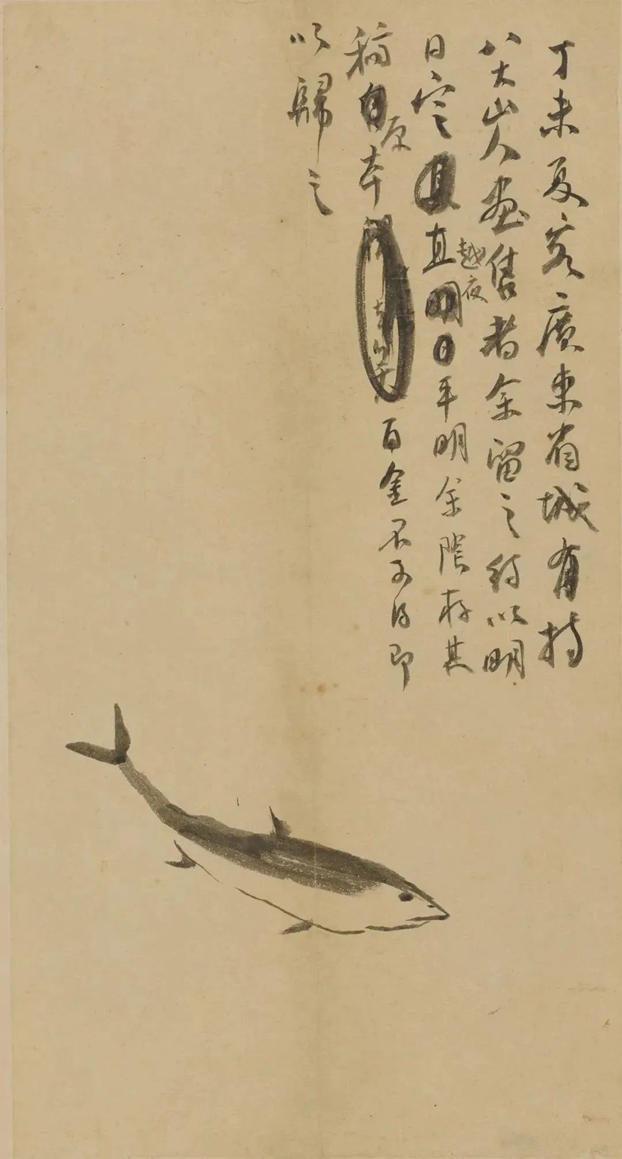 丁未夏客廣東省城有持
八大山人畫售者余留之約以明
日定直越夜平明余陰存其
稿原本百金不可得即
以歸之